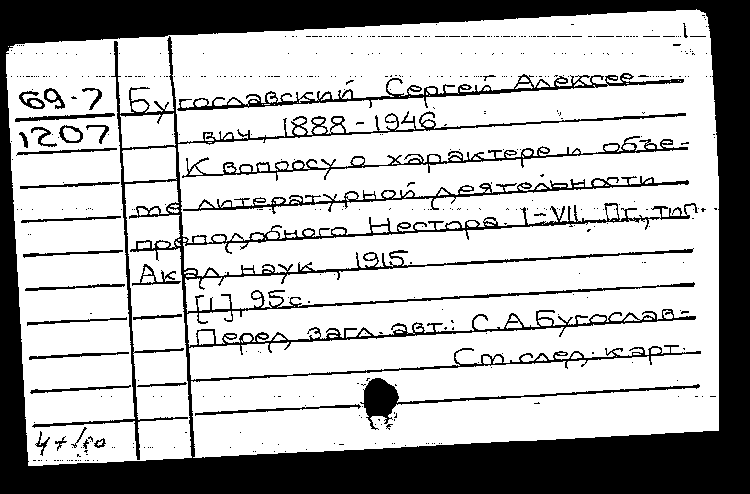 1
69-7 Бугославский, Сергей Алексее-
1207 вич, 1888-1946.
К вопросу о характере и объе-
ме литературной деятельности
преподобного Нестора. I-VII. Пг., тип.
Акад. наук, 1915.
[1], 95с.
Перед загл. авт.: С.А.Бугослав-
См. след. карт.